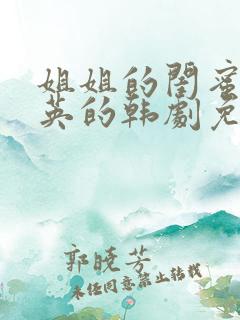 姐姐的闺蜜
英的韩劇免
郭晓芳
未经同意禁止转载